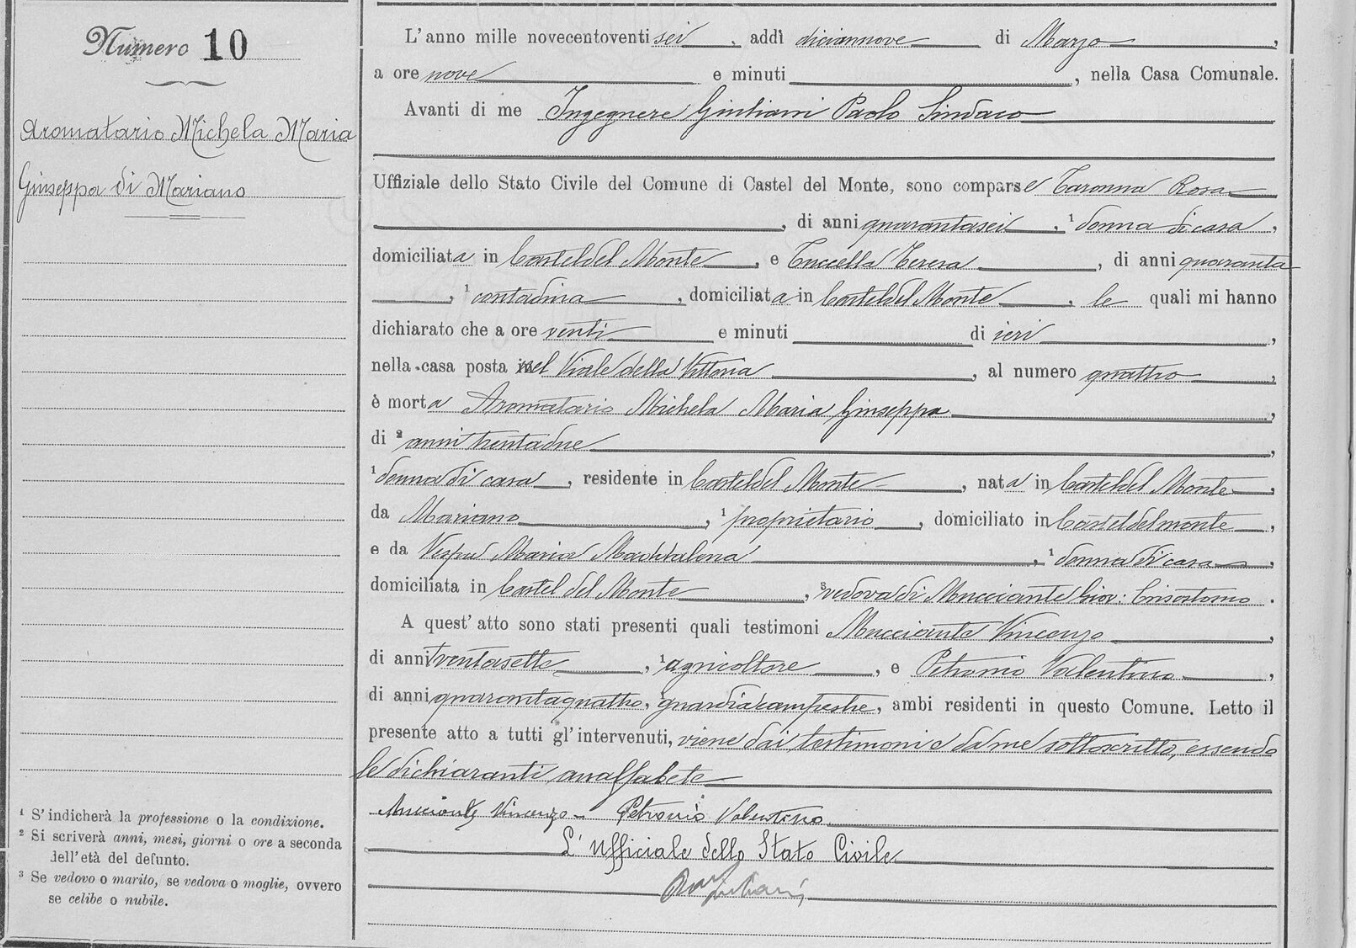 Numero 10
Aromatario Michela Maria
Giuseppa di Mariano
¹ S'indicherà la professione o la condizione.
² Si scriverà anni, mesi, giorni o ore a seconda
dell'età del defunto.
³ Se vedovo o marito, se vedova o moglie, ovvero
se celibe o nubile.
L'anno mille novecentoventi sei, addì diciannove di Marzo,
a ore nove e minuti, nella Casa Comunale.
Avanti di me Ingegnere Giuliani Paolo Sindaco
Uffiziale dello Stato Civile del Comune di Castel del Monte, sono comparse Taronna Rosa
, di anni quarantasei, ¹ donna di casa,
domiciliata in Casteldel Monte, e Tuccella Teresa, di anni quaranta
, ¹ contadina, domiciliata in Casteldel Monte, le quali mi hanno
dichiarato che a ore venti e minuti di ieri,
nella casa posta nel Viale della Vittoria, al numero quattro,
è morta Aromatario Michela Maria Giuseppa,
di ² anni trentadue,
¹ donna di casa, residente in Casteldel Monte, nata in Casteldel Monte,
da Mariano, ¹ proprietario, domiciliato in Casteldelmonte,
e da Maria Maddalena, ¹ donna di casa,
domiciliata in Castel del Monte, ³ vedova di Mucciante Giov: Crisostomo.
A quest'atto sono stati presenti quali testimoni Mucciante Vincenzo,
di anni trentasette, ¹ agricoltore, e Petronio Valentino,
di anni quarantaquattro, guardia campestre, ambi residenti in questo Comune. Letto il
presente atto a tutti gl'intervenuti, viene dai testimoni e da me sottoscritto, essendo
le dichiaranti analfabete
Mucciante Vincenzo - Petronio Valentino
L'Ufficiale dello Stato Civile
Giuliani